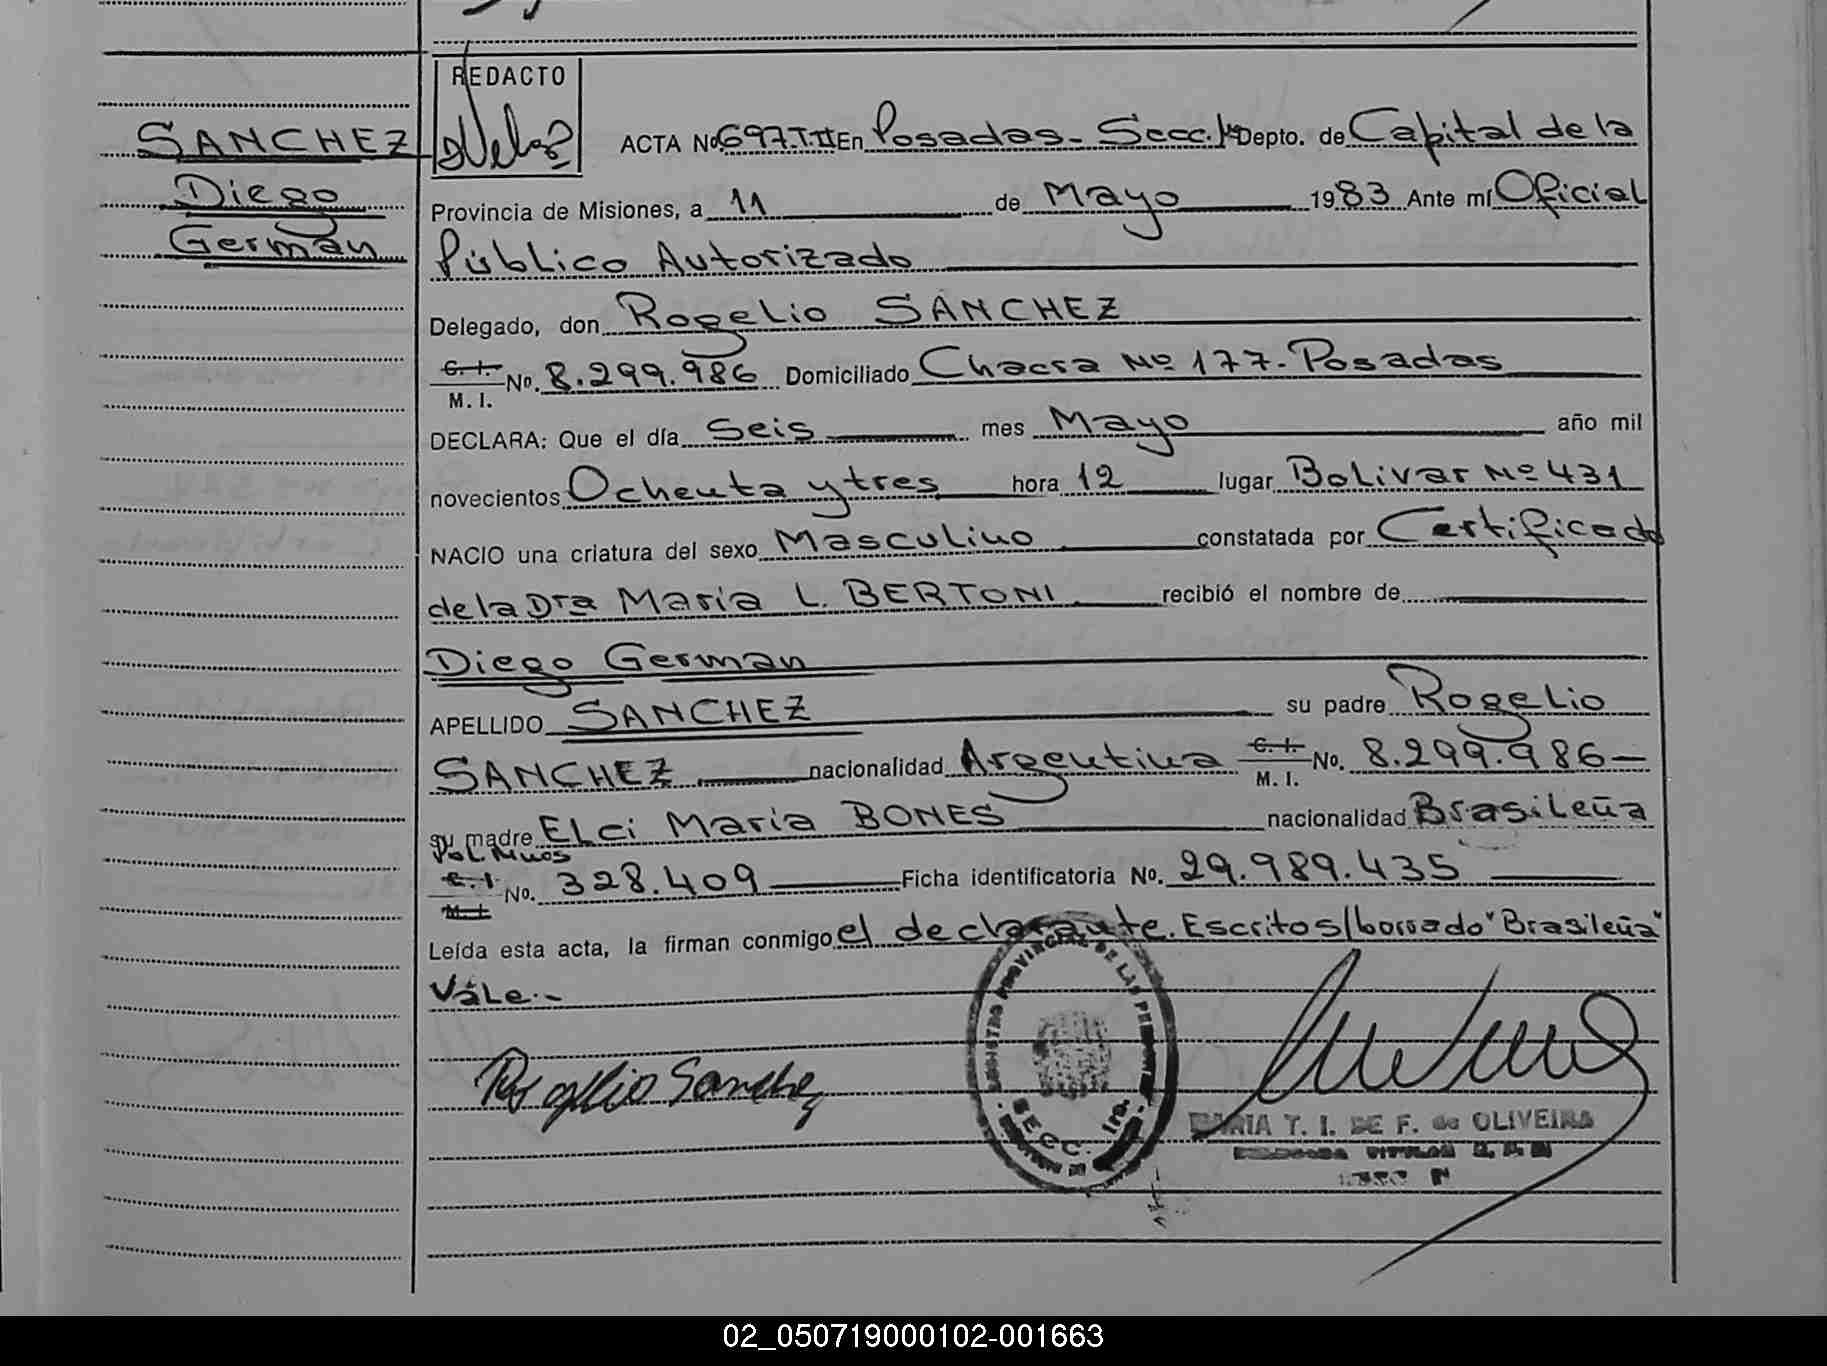 REDACTO
SANCHEZ
Diego
German
ACTA No 697.T.II En Posadas- Secc.1ª Depto. de Capital de la
Provincia de Misiones, a 11 de Mayo 1983 Ante mí Oficial
Público Autorizado
Delegado, don Rogelio SANCHEZ
C. I. No. 8.299.986 Domiciliado Chacra Nº 177- Posadas
M. I.
DECLARA: Que el día Seis mes Mayo año mil
novecientos Ochenta y tres hora 12 lugar Bolivar Nº 431
NACIO una criatura del sexo Masculino constatada por Certificado
de la Dra Maria L. BERTONI recibió el nombre de
Diego German
APELLIDO SANCHEZ su padre Rogelio
SANCHEZ nacionalidad Argentina C. I. No. 8.299.986-
M. I.
su madre Elci Maria BONES nacionalidad Brasileña
Pol. Mnes
C. I. No. 328.409 Ficha identificatoria No. 29.989.435
M. I.
Leída esta acta, la firman conmigo el declarante. Escrito s/borrado "Brasileña"
Vále.-
Rogelio Sanchez
REGISTRO PROVINCIAL DE LAS PERSONAS
SECC. 1ra.
MARIA T. I. DE F. de OLIVEIRA
02_050719000102-001663